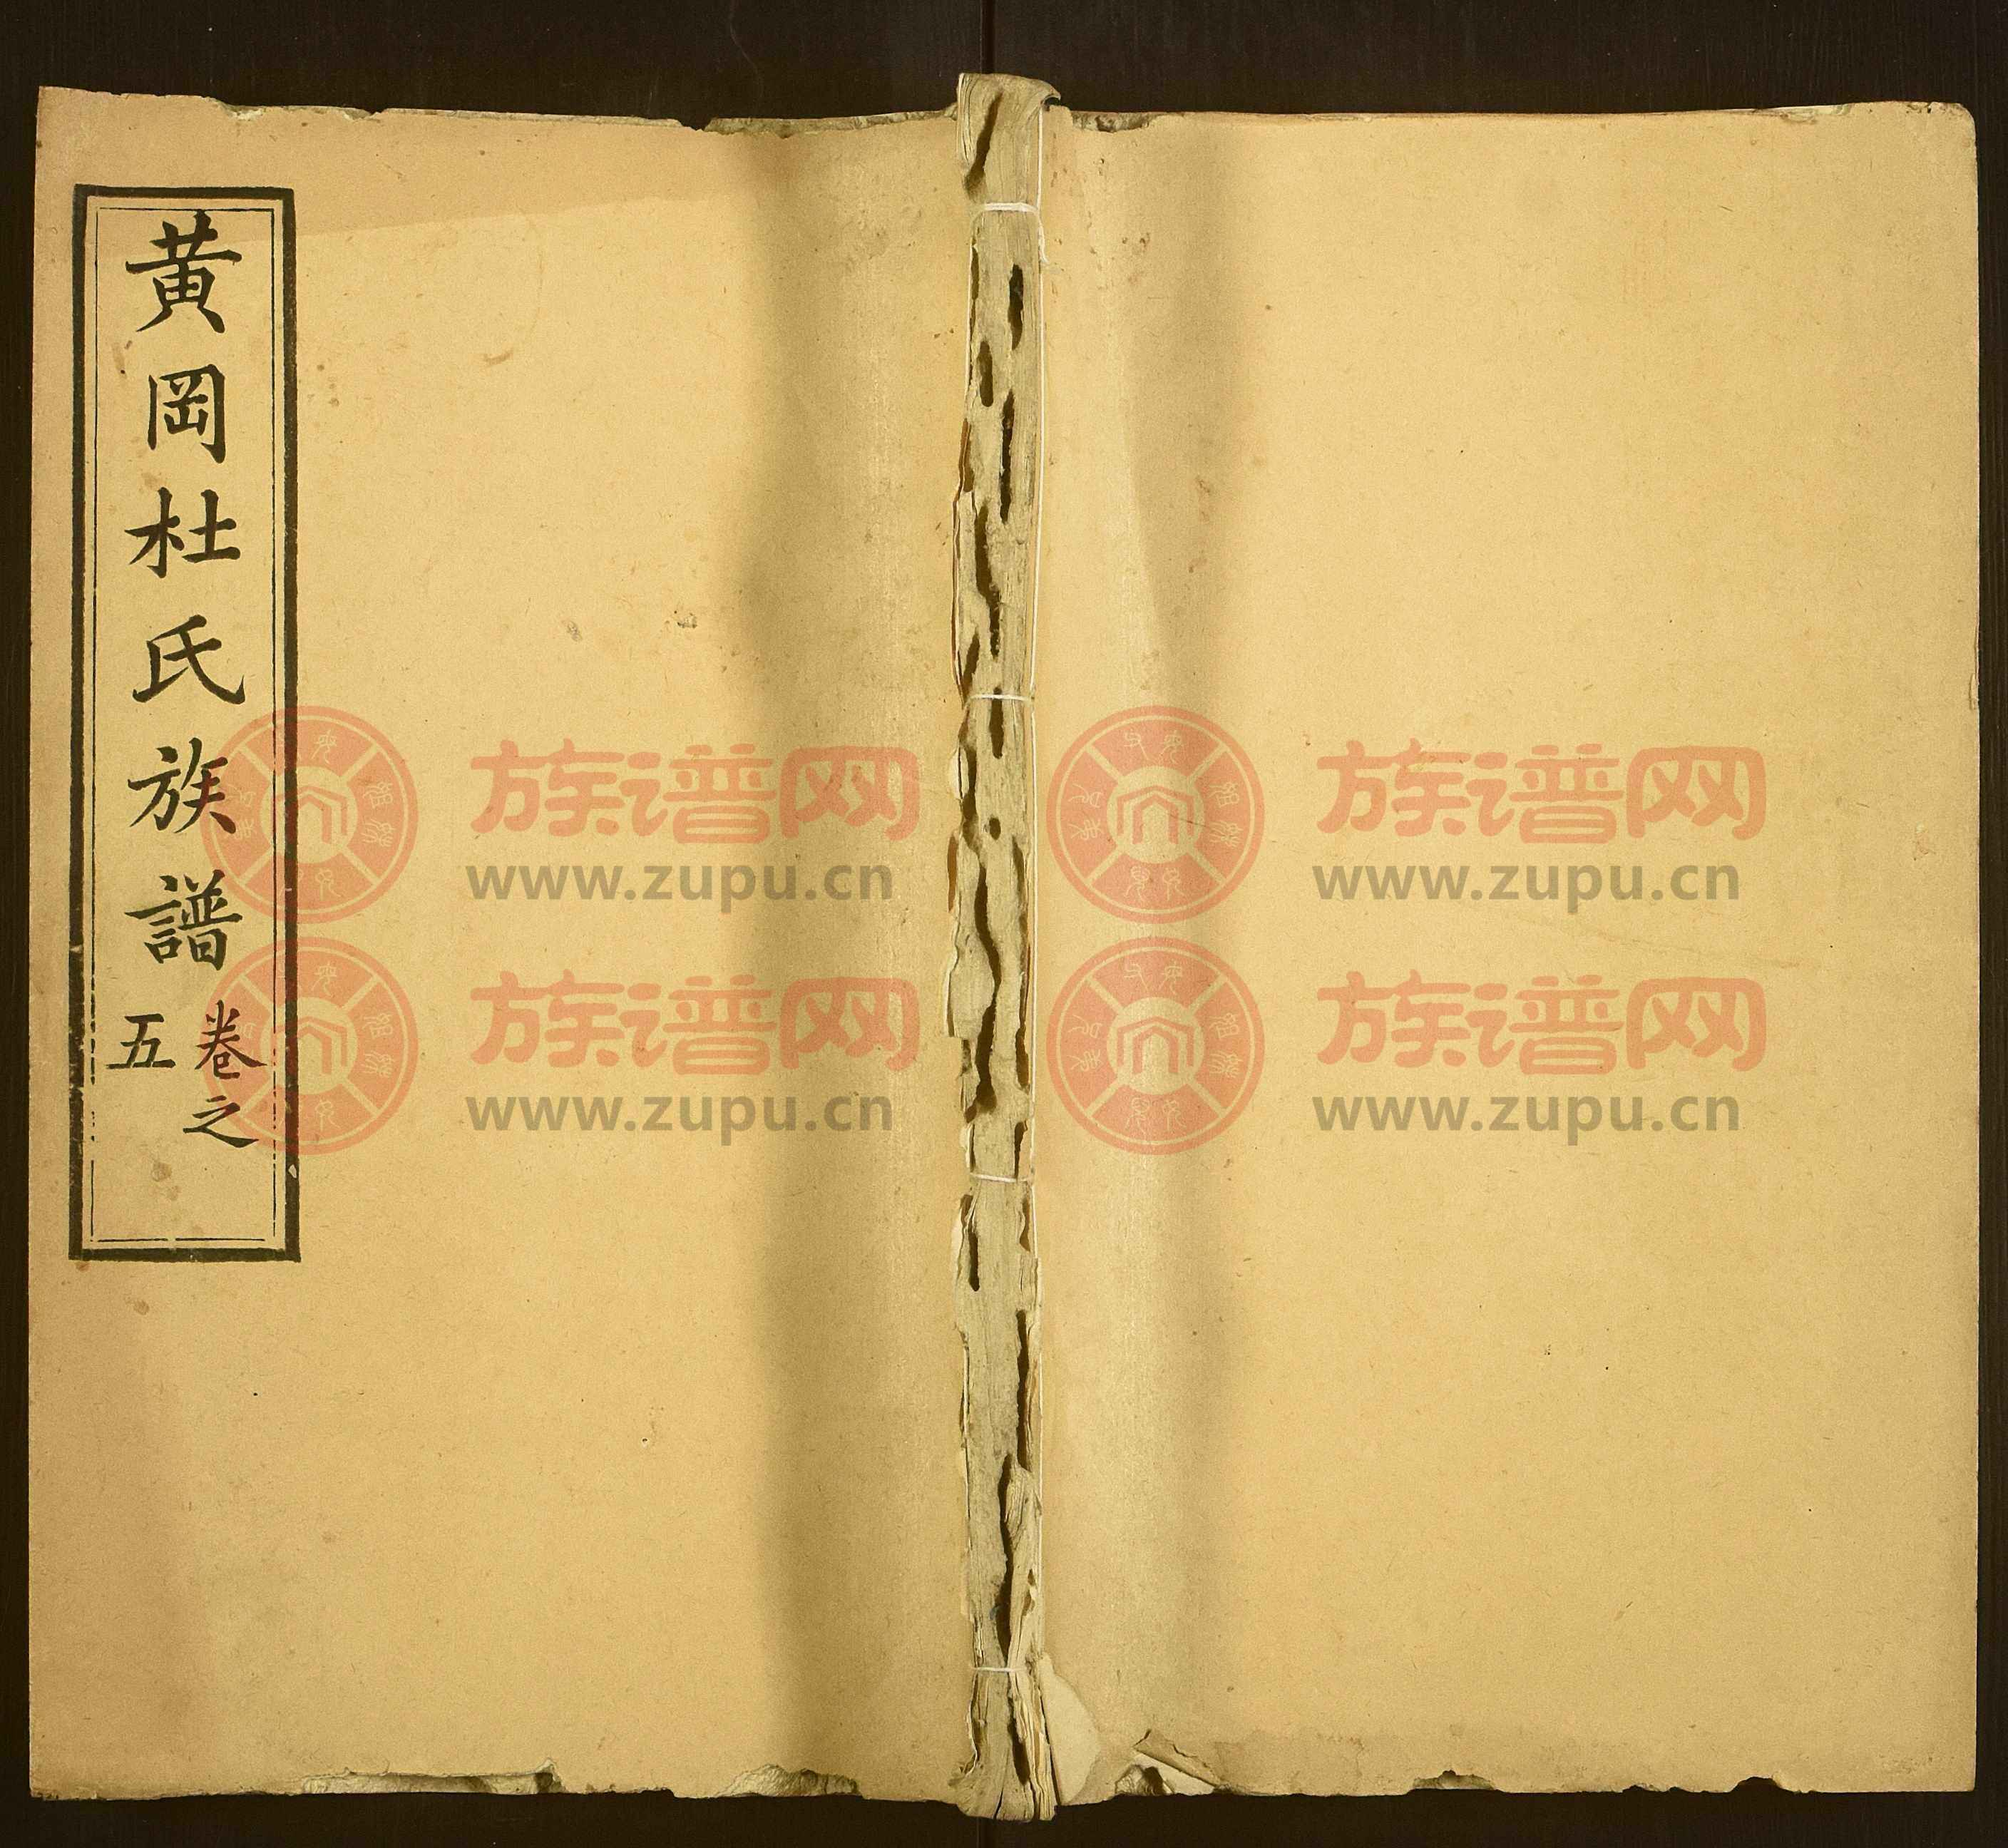 黄岡杜氏族譜
卷之
五
族谱网
www.zupu.cn
族谱网
www.zupu.cn
族谱网
www.zupu.cn
族谱网
www.zupu.cn